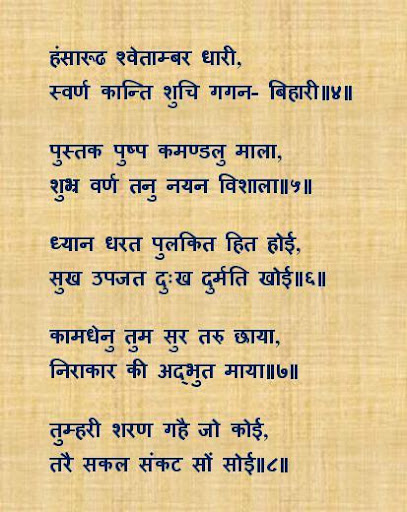 हंसारूढ श्वेताम्बर धारी,
स्वर्ण कान्ति शुचि गगन- बिहारी॥४॥
पुस्तक पुष्प कमण्डलु माला,
शुभ्र वर्ण तनु नयन विशाला॥५॥
ध्यान धरत पुलकित हित होई,
सुख उपजत दुःख दुर्मति खोई॥६॥
कामधेनु तुम सुर तरु छाया,
निराकार की अद्भुत माया॥७॥
तुम्हरी शरण गहै जो कोई,
तरै सकल संकट सों सोई॥८॥